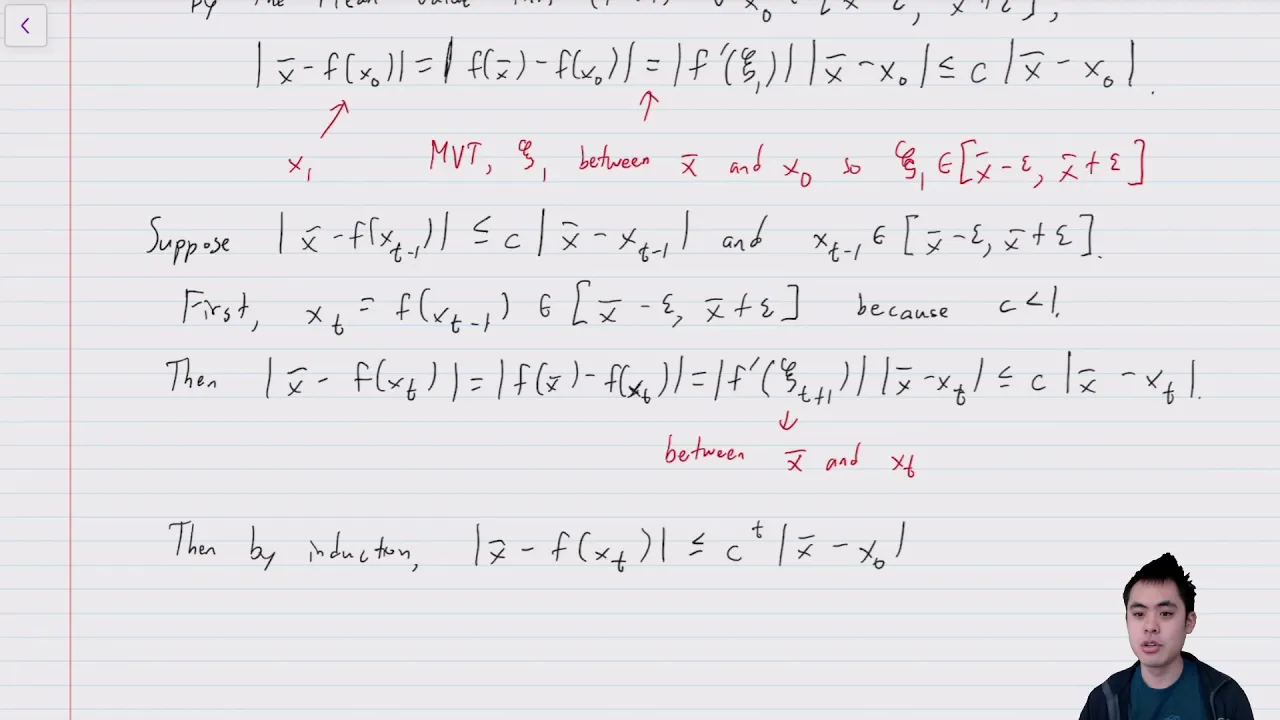 by the Mean Value x₀
|x̄ − f(x₀)| = |f(x̄) − f(x₀)| = |f′(ξ₁)| |x̄ − x₀| ≤ c |x̄ − x₀|.
x₁ MVT, ξ₁ between x̄ and x₀ so ξ₁ ∈ [x̄ − ε, x̄ + ε]
Suppose |x̄ − f(xₜ₋₁)| ≤ c |x̄ − xₜ₋₁| and xₜ₋₁ ∈ [x̄ − ε, x̄ + ε].
First, xₜ = f(xₜ₋₁) ∈ [x̄ − ε, x̄ + ε] because c < 1.
Then |x̄ − f(xₜ)| = |f(x̄) − f(xₜ)| = |f′(ξₜ₊₁)| |x̄ − xₜ| ≤ c |x̄ − xₜ|.
between x̄ and xₜ
Then by induction, |x̄ − f(xₜ)| ≤ cᵗ |x̄ − x₀|